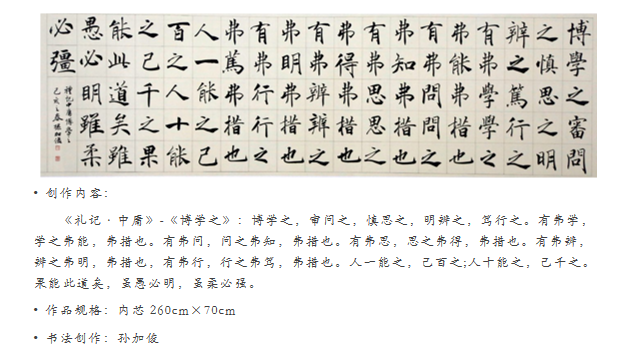 博學之審問
之慎思之明
辨之篤行之
有弗學學之
弗能弗措也
有弗問問之
弗知弗措也
有弗思思之
弗得弗措也
有弗辨辨之
弗明弗措也
有弗行行之
弗篤弗措也
人一能之己
百之人十能
之己千之果
能此道矣雖
愚必明雖柔
必彊
禮記中庸博學之
• 创作内容：
《礼记·中庸》-《博学之》：博学之，审问之，慎思之，明辨之，笃行之。有弗学，
学之弗能，弗措也。有弗问，问之弗知，弗措也。有弗思，思之弗得，弗措也。有弗辨，
辨之弗明，弗措也，有弗行，行之弗笃，弗措也。人一能之，己百之;人十能之，己千之。
果能此道矣，虽愚必明，虽柔必强。
• 作品规格：内芯 260cm×70cm
• 书法创作：孙加俊